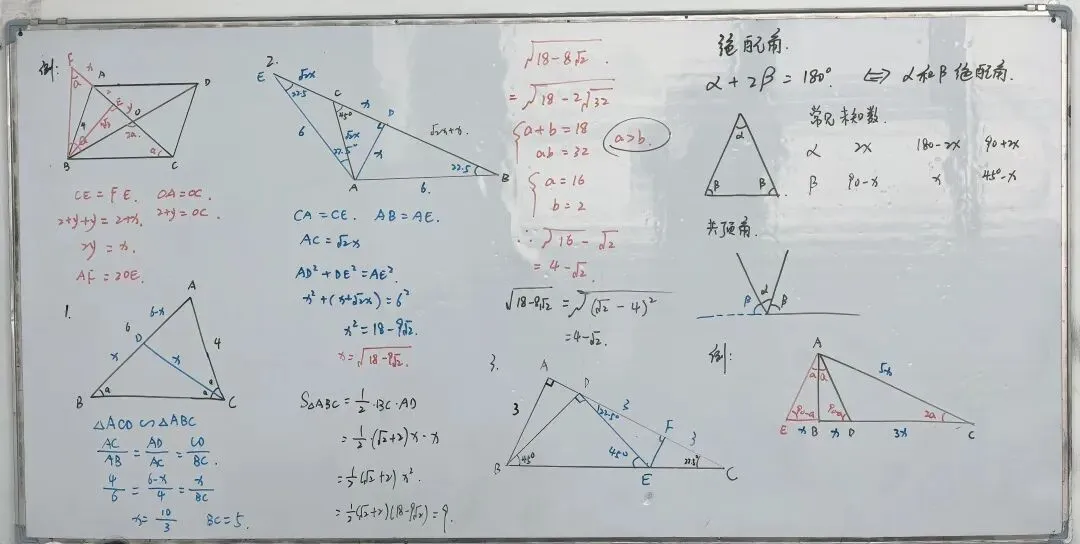 例:
F
x
A
D
a
E
y
O
4
2a
a
B
C
CE=FE. OA=OC.
x+y+y=2+x. 2+y=OC.
xy=x.
AF=2OE.
1.
A
6-x
6
D
4
x
x
B
a
a
a
C
△ACD∽△ABC
AC/AB=AD/AC=CD/BC.
4/6=6-x/4=x/BC
x=10/3 BC=5.
2.
E
√2x
22.5
C
x
45°
D
6
√2x
√2x+x.
22.5°
x
22.5
A
6.
B
CA=CE. AB=AE.
AC=√2x
AD²+DE²=AE²
x²+(x+√2x)=6²
x²=18-9√2.
x=√18-9√2.
S△ABC=1/2·BC·AD
=1/2(√2+2)x·x
=1/2(√2+2)x².
=1/2(√2+2)(18-9√2)=9.
√18-8√2.
=√18-2√32
{a+b=18
ab=32
a>b.
{a=16
b=2
∴√16-√2
=4-√2.
√18-8√2=√(√2-4)²
=4-√2.
3.
A
D
3
22.5°
3
F
3
B
45°
45°
22.5°
E
C
绝配角.
α+2β=180° ⇔ α和β绝配角.
常见未知数.
α 2x 180-2x 90+2x
β 90-x x 45°-x
α
β
β
共顶角.
β
α
β
例:
A
a
a
5x
90-a
90-a
2a
E
x
B
x
D
3x
C